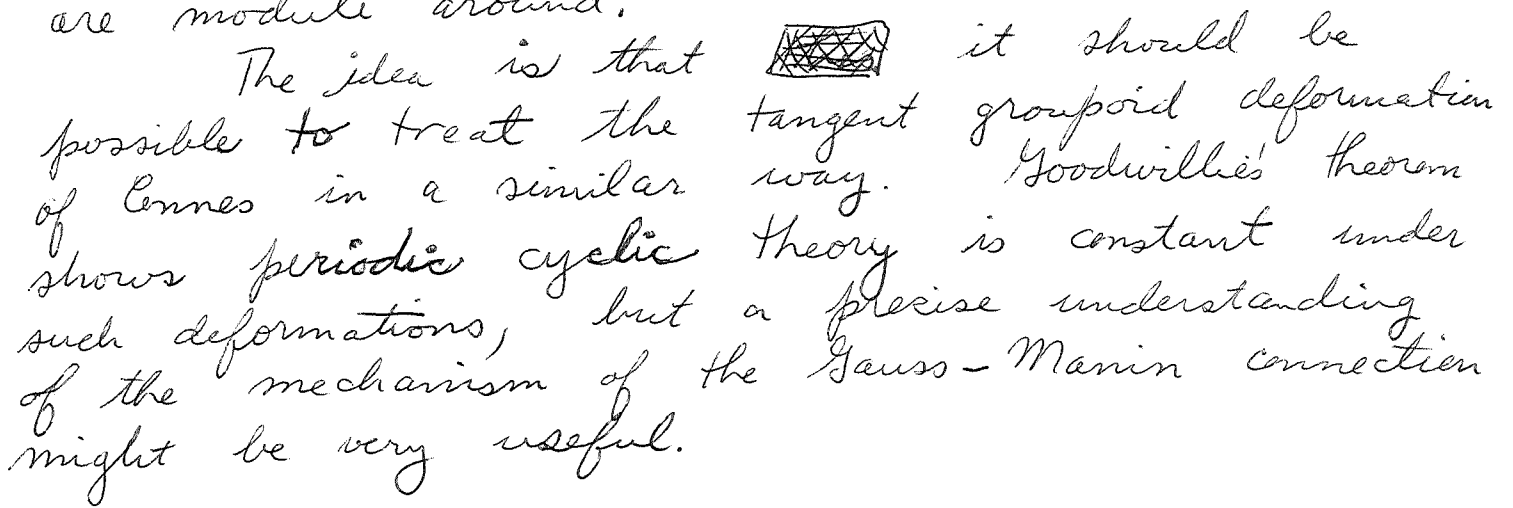 are module around.
The idea is that it should be
possible to treat the tangent groupoid deformation
of Connes in a similar way. Goodwillie's theorem
shows periodic cyclic theory is constant under
such deformations, but a precise understanding
of the mechanism of the Gauss-Manin connection
might be very useful.